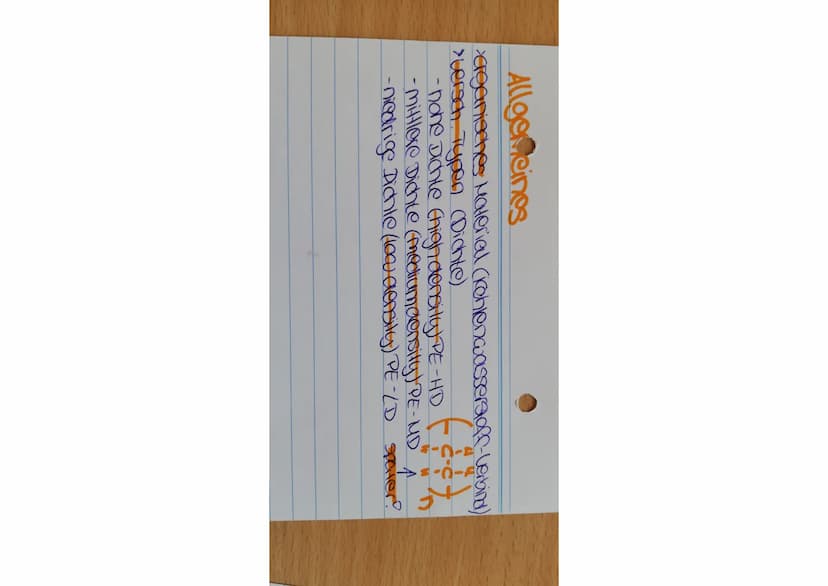 Allgemeines
> organisches Material (Kohlenwasserstoff-Verbind)
> versch. Typen (Dichte)
- hohe Dichte (high density) PE-HD
- mittlere Dichte (medium density) PE-MD ↑
- niedrige Dichte (low density) PE-LD später?
H H
(-C-C-)
H H n